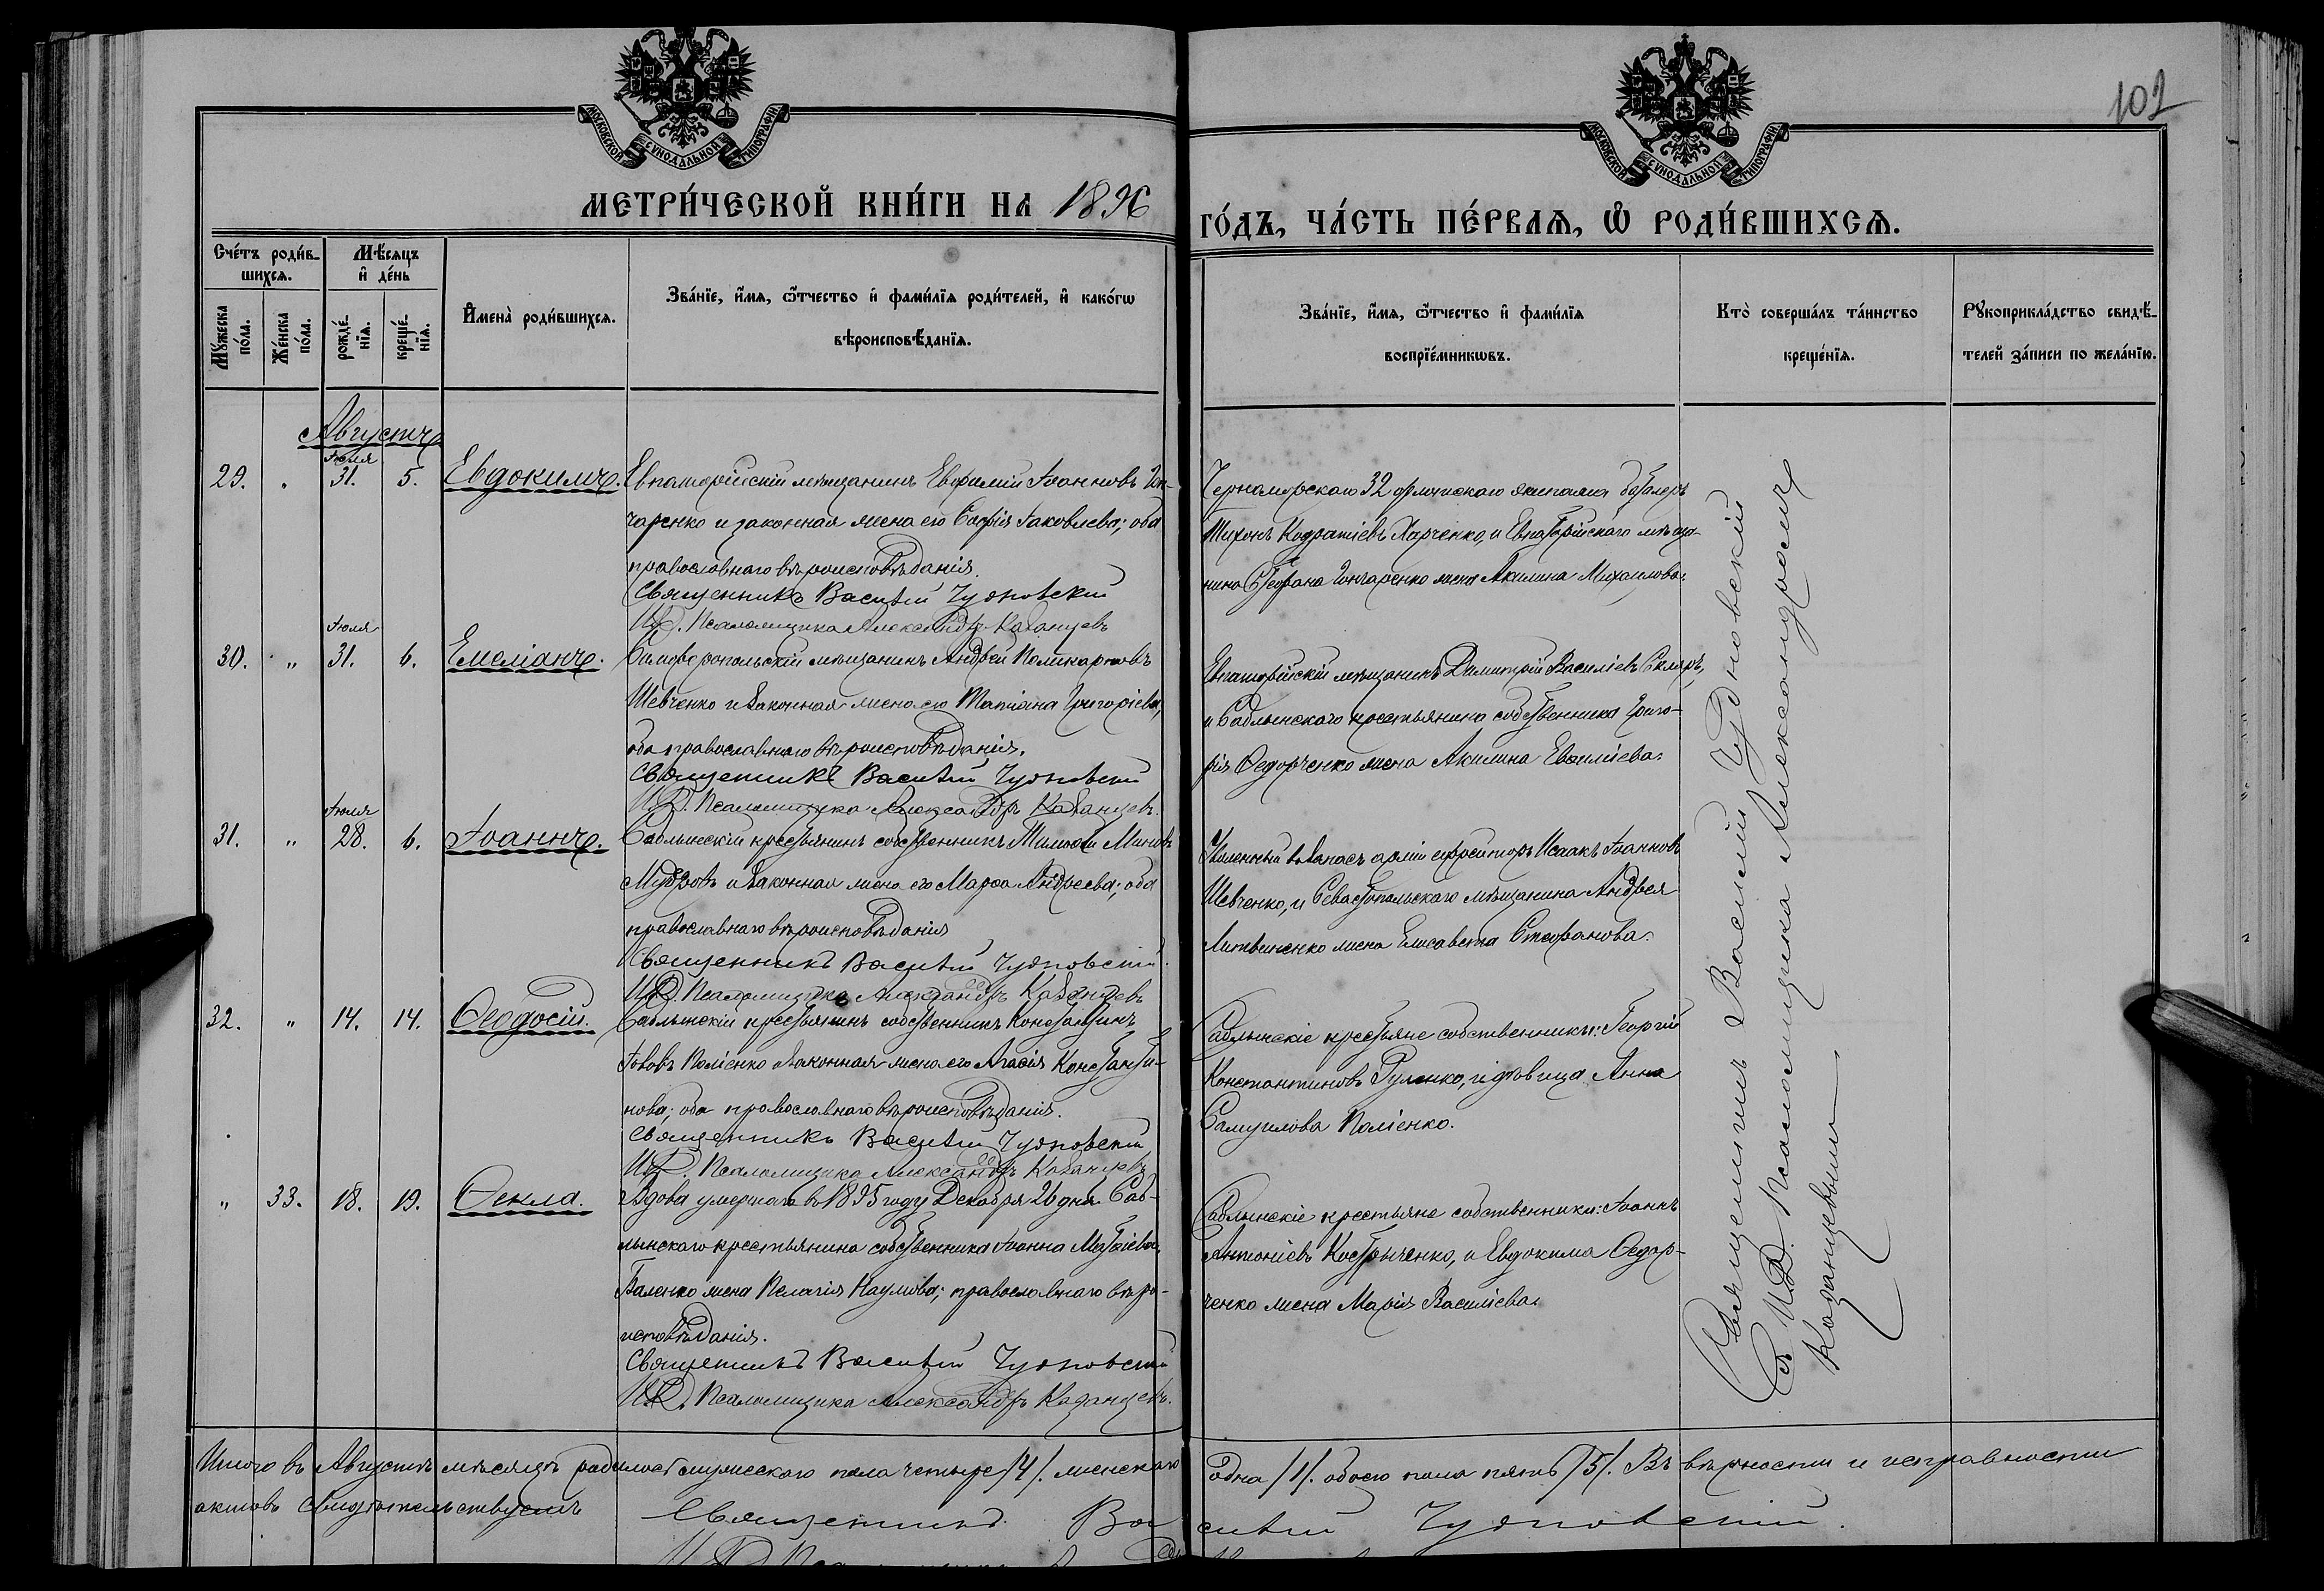 102
МОСКОВСКОЙ СѴНОДАЛЬНОЙ ТИПОГРАФІИ.
МОСКОВСКОЙ СѴНОДАЛЬНОЙ ТИПОГРАФІИ.
МЕТРИ́ЧЕСКОЙ КНИ́ГИ НА 1896
ГО́ДЪ, ЧА́СТЬ ПЕ́РВАѦ, Ѡ҆ РОДИ́ВШИХСѦ.
Сче́тъ роди́в-
шихсѧ.
Мꙋ́жеска по́ла.
Же́нска по́ла.
Мѣ́сѧцъ
и҆ де́нь
рожде́-нїѧ.
креще́-нїѧ.
И҆мена̀ роди́вшихсѧ.
Зва́нїе, и҆́мѧ, ѻ҆́тчество и҆ фами́лїѧ роди́телей, и҆ како́гѡ
вѣроисповѣ́данїѧ.
Зва́нїе, и҆́мѧ, ѻ҆́тчество и҆ фами́лїѧ
воспрїе́мникѡвъ.
Кто̀ соверша́лъ та́инство
креще́нїѧ.
Рꙋкоприкла́дство свидѣ́-
телей за́писи по жела́нїю.
Августъ
29. " Іюля 31. 5. Евдокимъ.
Евпаторійскій мѣщанинъ Евфимій Іоанновъ Гон-
чаренко и законная жена его Софія Іаковлева; оба
православнаго вѣроисповѣданія.
Священникъ Василій Чудновскій
И.Д. Псаломщика Александръ Казанцевъ
Черноморскаго 32 флотскаго экипажа
Тихонъ Кодратіевъ Харченко, и Евпаторійскаго мѣща-
нина Стефана Гончаренко жена Акилина Михаилова.
30. " Іюля 31. 6. Емеліанъ.
Симферопольскій мѣщанинъ Андрей Поликарповъ
Шевченко и законная жена его Татіана Григоріева,
оба православнаго вѣроисповѣданія.
Священникъ Василій Чудновскій
И.Д. Псаломщика Александръ Казанцевъ.
Евпаторійскій мѣщанинъ Димитрій Василіевъ Скляръ,
и Саблынскаго крестьянина собственника Григо-
рія Ѳедорченко жена Акилина
31. " Іюля 28. 6. Іоаннъ.
Саблынскій крестьянинъ собственникъ Тимоѳей Миновъ
Мудровъ и законная жена его Марѳа Андреева; оба
православнаго вѣроисповѣданія
Священникъ Василій Чудновскій.
И.Д. Псаломщика Александръ Казанцевъ
Уволенный въ запасъ арміи ефрейторъ Исаакъ Іоанновъ
Шевченко, и Севастопольскаго мѣщанина Андрея
Литвиненко жена Елисавета Стефанова.
32. " 14. 14. Ѳеодосій.
Саблынскій крестьянинъ собственникъ Константинъ
Іововъ Поліенко и законная жена его Агаѳія Константи-
нова; оба православнаго вѣроисповѣданія.
Священникъ Василій Чудновскій
И.Д. Псаломщика Александръ Казанцевъ
Саблынскіе крестьяне собственники: Георгій
Константиновъ Руленко, и дѣвица Анна
Самуилова Поліенко.
" 33. 18. 19. Ѳекла.
Вдова умершаго въ 1895 году Декабря 26 дня Саб-
лынскаго крестьянина собственника Іоанна Матѳіева
Баленко жена Пелагія Наумова; православнаго вѣро-
исповѣданія.
Священникъ Василій Чудновскій
И.Д. Псаломщика Александръ Казанцевъ.
Саблынскіе крестьяне собственники: Іоаннъ
Антоніевъ Костыченко, и Евдокима Ѳедор-
ченко жена Марія Василіева.
Священникъ Василій Чудновскій
съ И.Д. Псаломщика Александромъ
Казанцевымъ
Итого въ Августѣ мѣсяцѣ родилось мужескаго пола четыре /4/. женскаго одна /1/. обоего пола пять /5/. Въ вѣрности и исправности
актовъ свидѣтельствуемъ
Священникъ Василій Чудновскій.